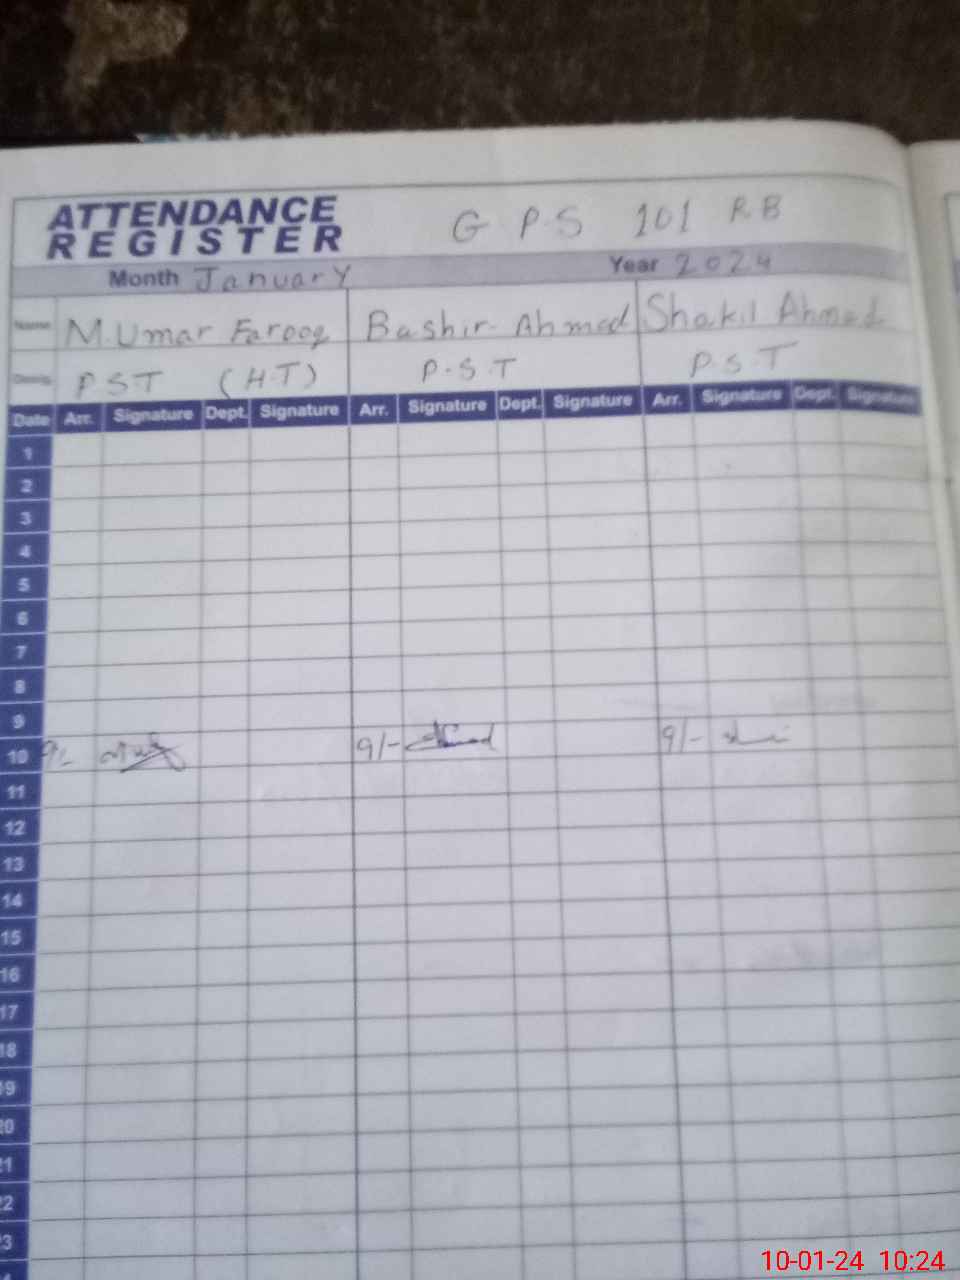 ATTENDANCE
REGISTER
G P.S 101 RB
Month January Year 2024
Name M.Umar Farooq Bashir Ahmad Shakil Ahmad
P.S.T (H.T) P.S.T P.S.T
Date Arr. Signature Dept. Signature Arr. Signature Dept. Signature Arr. Signature Dept. Signature
1
2
3
4
5
6
7
8
9
10 9/- 9/- 9/-
11
12
13
14
15
16
17
18
19
20
21
22
23
10-01-24 10:24